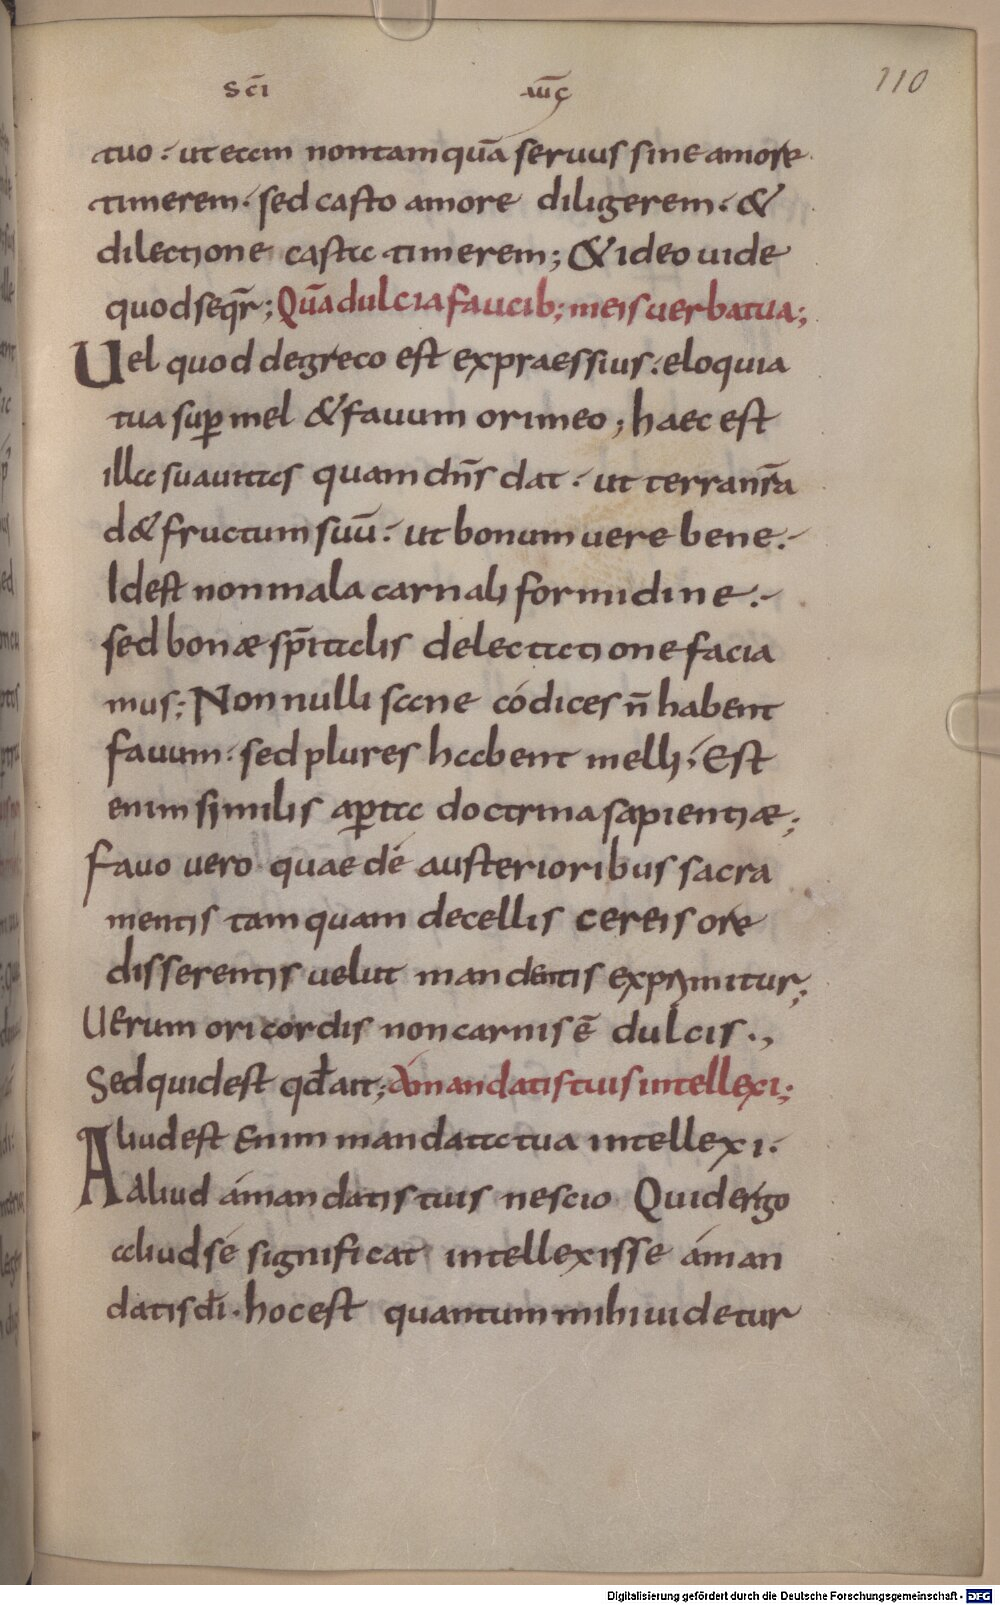 sc̄i aūg 110
tuo· ut etem non tam quā seruus sine amore
timerem· sed casto amore diligerem· &
dilectione casta timerem; & ideo uide
quod seqr̄; Quā dulcia faucib; meis uerba tua;
Uel quod de greco est expraessius· eloquia
tua sup mel & fauum ori meo; haec est
illa suauitas quam dn̄s dat· ut terra nr̄a
d& fructum suū· ut bonum uere bene·
Id est non mala carnali formidine·
sed bonæ sp̄italis delectatione facia
mus; Non nulli sane códices n̄ habent
fauum· sed plures habent melli; Est
enim similis aperta doctrina sapientiæ;
Fauo uero quae dé austerioribus sacra
mentis tamquam de cellis cereis ore
disserentis uelut mandentis exprimitur;
Uerum ori cordis non carnis ē dulcis·,
Sed quid est qd̄ ait; Á mandatis tuis intellexi;
Aliud est enim mandata tua intellexi·
Aaliud á mandatis tuis nescio Quid ergo
aliud sé significat intellexisse á man
datis dī· hoc est quantum mihi uidetur
Digitalisierung gefördert durch die Deutsche Forschungsgemeinschaft - DFG